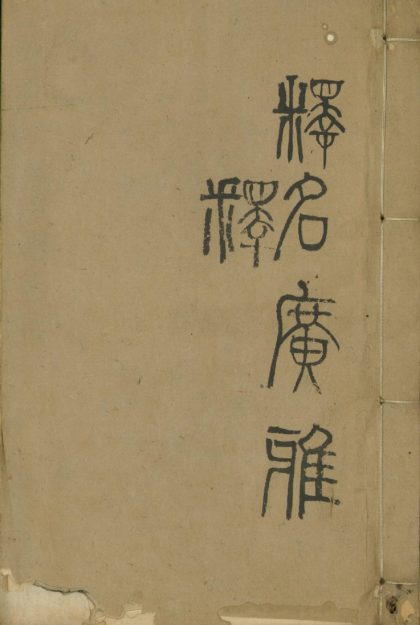 釋名廣雅
釋